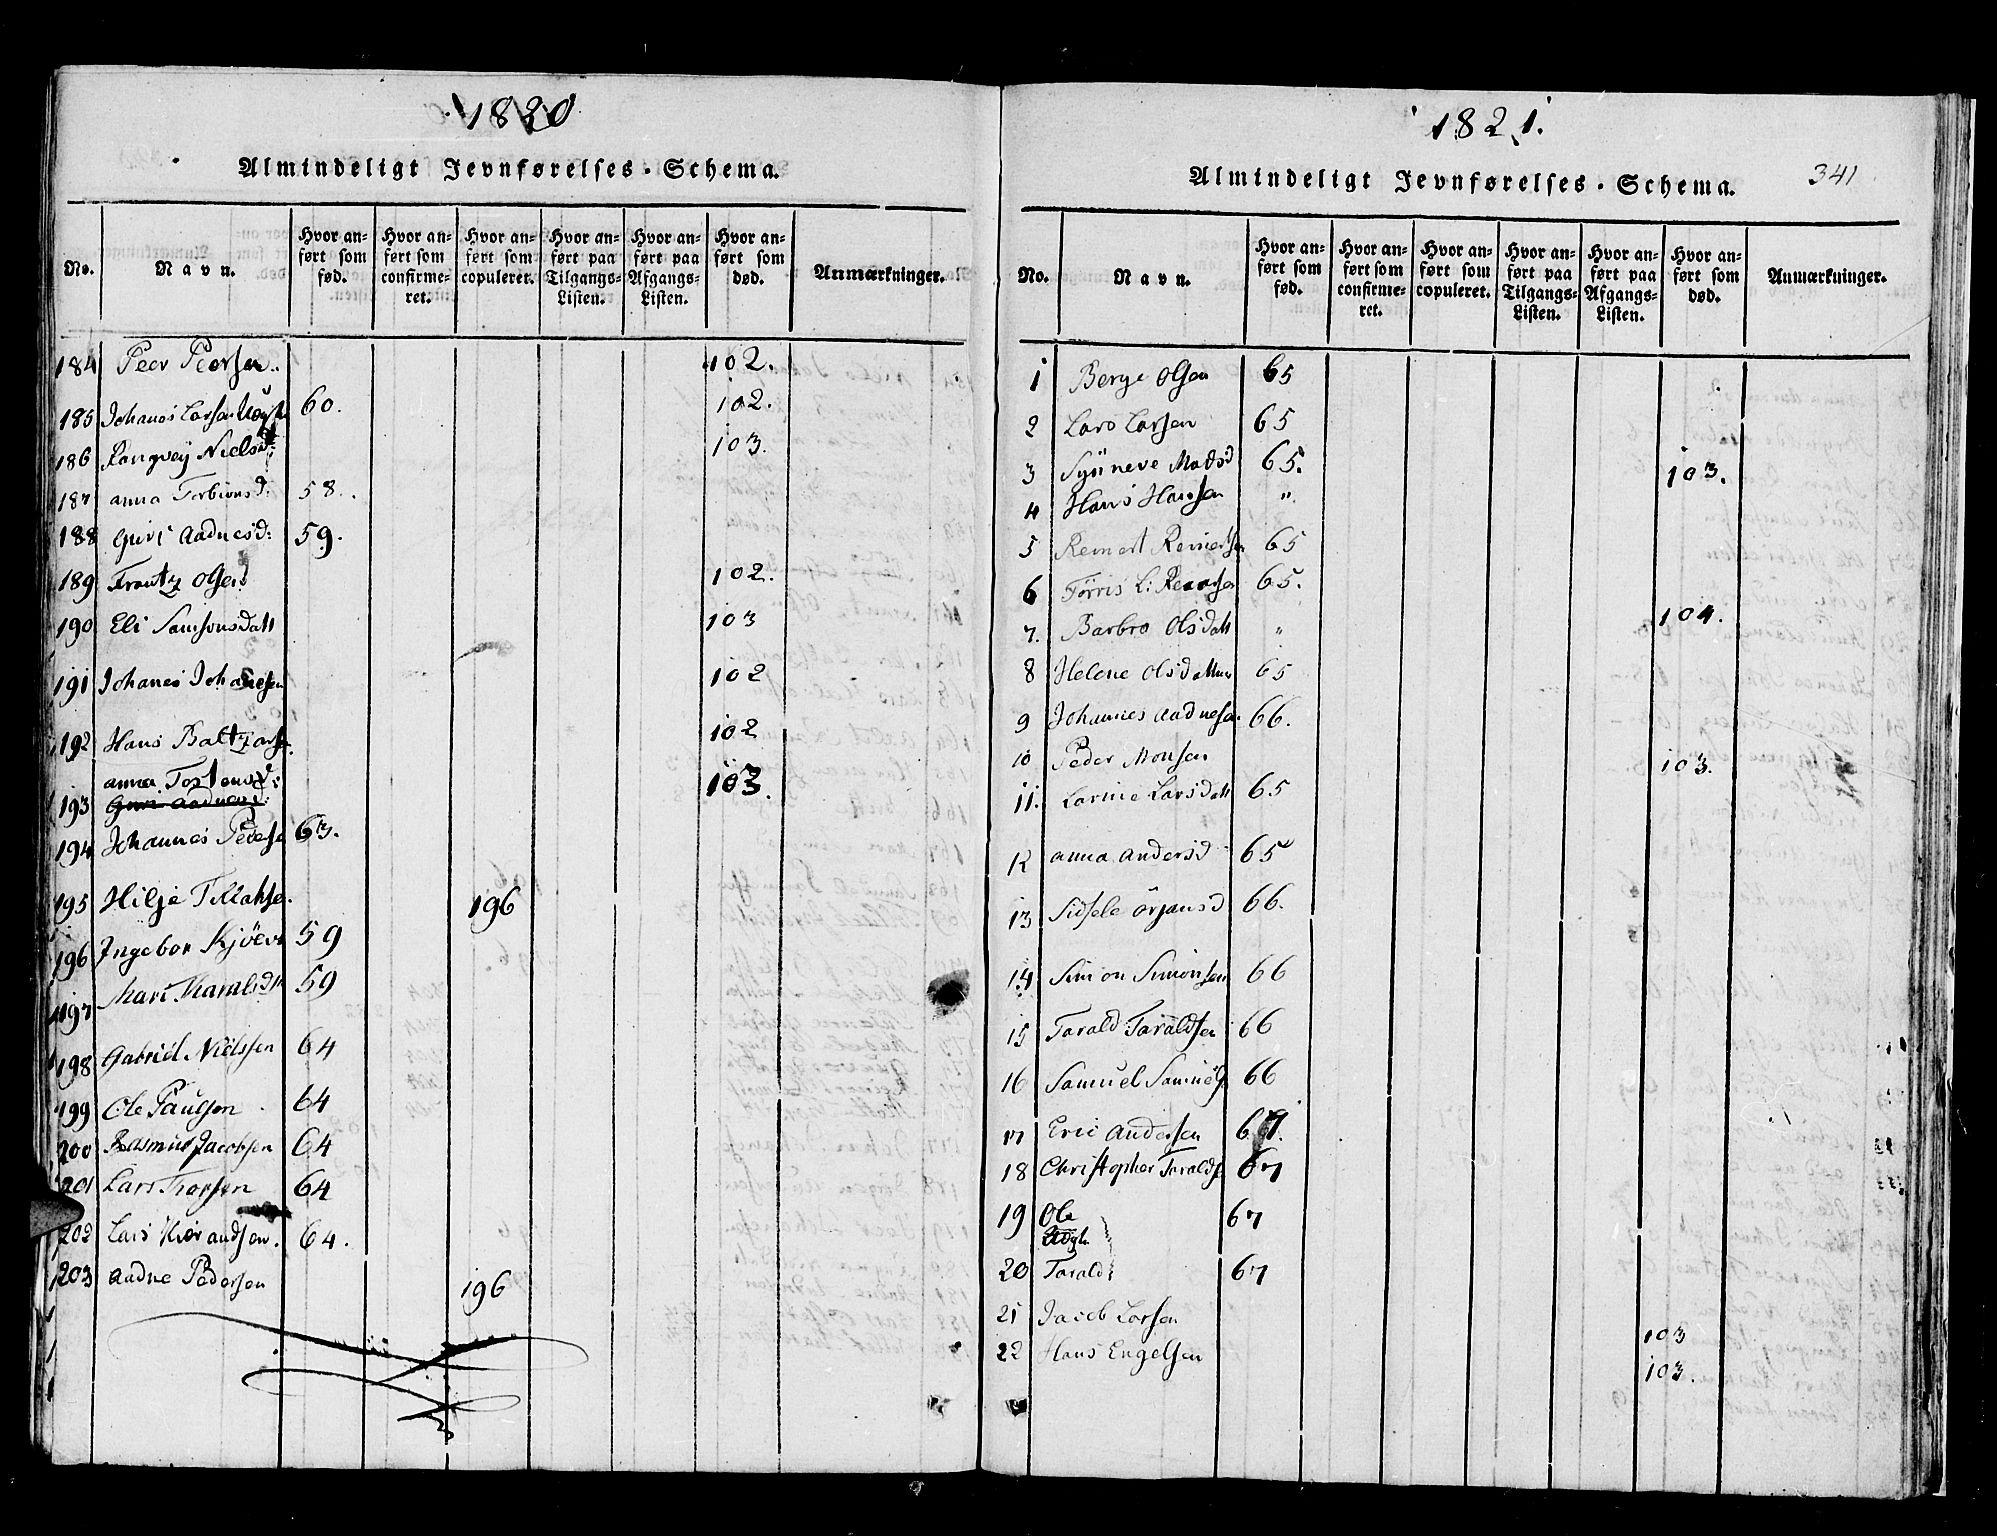 1820
Almindeligt Jevnførelses-Schema.
No.
Navn.
Hvor anført som fød.
Hvor anført som confirmeret.
Hvor anført som copuleret.
Hvor anført paa Tilgangs-Listen.
Hvor anført paa Afgangs-Listen.
Hvor anført som død.
Anmærkninger.
184 Peer Peersen. 102.
185 Johanes Larsen 60. 102.
186 Rangvej Nielsd: 103.
187 anna Torbionsd: 58.
188 Guri Aadnesd: 59.
189 Frantz Olsen 102.
190 Eli Samsonsdatt 103
191 Johanes Johanesen 102
192 Hans Baltzarsen. 102
anna Tostensd:
193 Guri Aadnesd: 103.
194 Johannes Pedersen 63.
195 Hilje Tollakse. 196
196 Ingebor 59
197 Mari Haraldsdtr 59
198 Gabriel Nielssen 64
199 Ole Paulsen 64
200 Rasmus Jacobsen 64
201 Lars Thorsen 64
202 Lars 64.
203 Aadne Pedersen 196
1821.
Almindeligt Jevnførelses-Schema.
341
No.
Navn.
Hvor anført som fød.
Hvor anført som confirmeret.
Hvor anført som copuleret.
Hvor anført paa Tilgangs-Listen.
Hvor anført paa Afgangs-Listen.
Hvor anført som død.
Anmærkninger.
1 Berge Olsen 65
2 Lars Larsen 65
3 Syneve Madsd 65. 103.
4 Hans Hansen "
5 Reinert Reinertsen 65
6 Tørris L: 65.
7. Barbro Olsdatt " 104.
8 Helene Olsdatter 65
9 Johannes Aadnesen. 66.
10 Peder Monsen 103.
11. Larine Larsdatt 65
12 anna Andersd 65
13 Sidsele Ørjansd 66.
14 Simon Simonsen 66
15 Tarald Taraldsen 66
16 Samuel Samuels 66
17 Eric Andersen 67.
18 Christopher Taralds 67
19 Ole 67
20 Tarald 67
21 Jacob Larsen 103
22 Hans Engelsen 103.